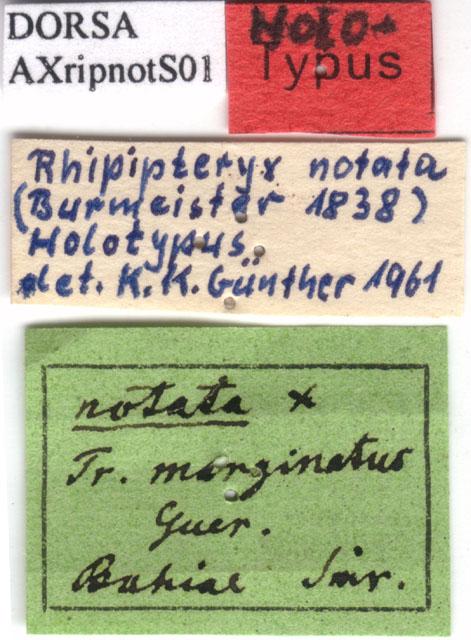 DORSA
AXripnotS01
Holo-
Typus
Rhipipteryx notata
(Burmeister 1838)
Holotypus.
det. K. K. Günther 1961
notata x
Tr. marginatus
Guer.
Bahiae